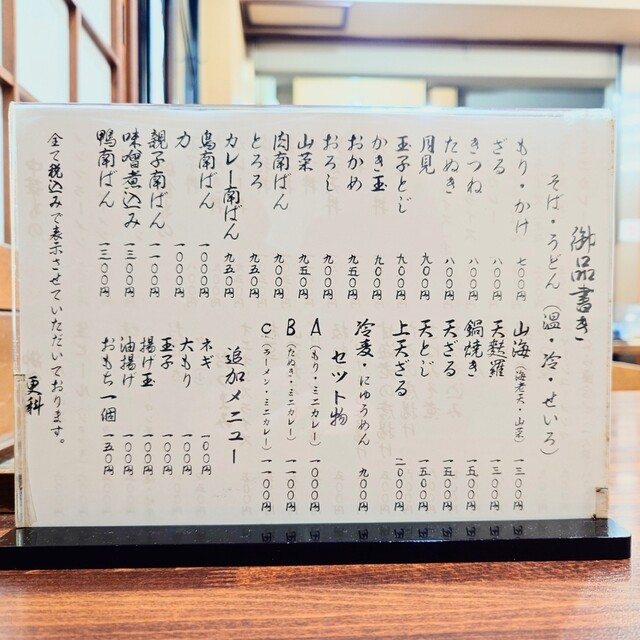 御品書き
そば・うどん（温・冷・せいろ）
もり・かけ 七〇〇円
ざる 八〇〇円
きつね 八〇〇円
たぬき 八〇〇円
月見 九〇〇円
玉子とじ 九〇〇円
かき玉 九〇〇円
おかめ 九五〇円
おろし 九〇〇円
山菜 九五〇円
肉南ばん 九〇〇円
とろろ 九五〇円
カレー南ばん 九五〇円
鳥南ばん 一〇〇〇円
力 一〇〇〇円
親子南ばん 一一〇〇円
味噌煮込み 一三〇〇円
鴨南ばん 一三〇〇円
山海（海老天・山菜） 一三〇〇円
天麩羅 一三〇〇円
鍋焼き 一五〇〇円
天ざる 一五〇〇円
天とじ 一五〇〇円
上天ざる 二〇〇〇円
冷麦・にゅうめん 九〇〇円
セット物
A（もり・ミニカレー） 一〇〇〇円
B（たぬき・ミニカレー） 一一〇〇円
C（ラーメン・ミニカレー） 一一〇〇円
追加メニュー
ネギ 一〇〇円
大もり 一〇〇円
玉子 一〇〇円
揚げ玉 一〇〇円
油揚げ 一〇〇円
おもち 一個 一五〇円
全て税込みで表示させていただいております。
更科